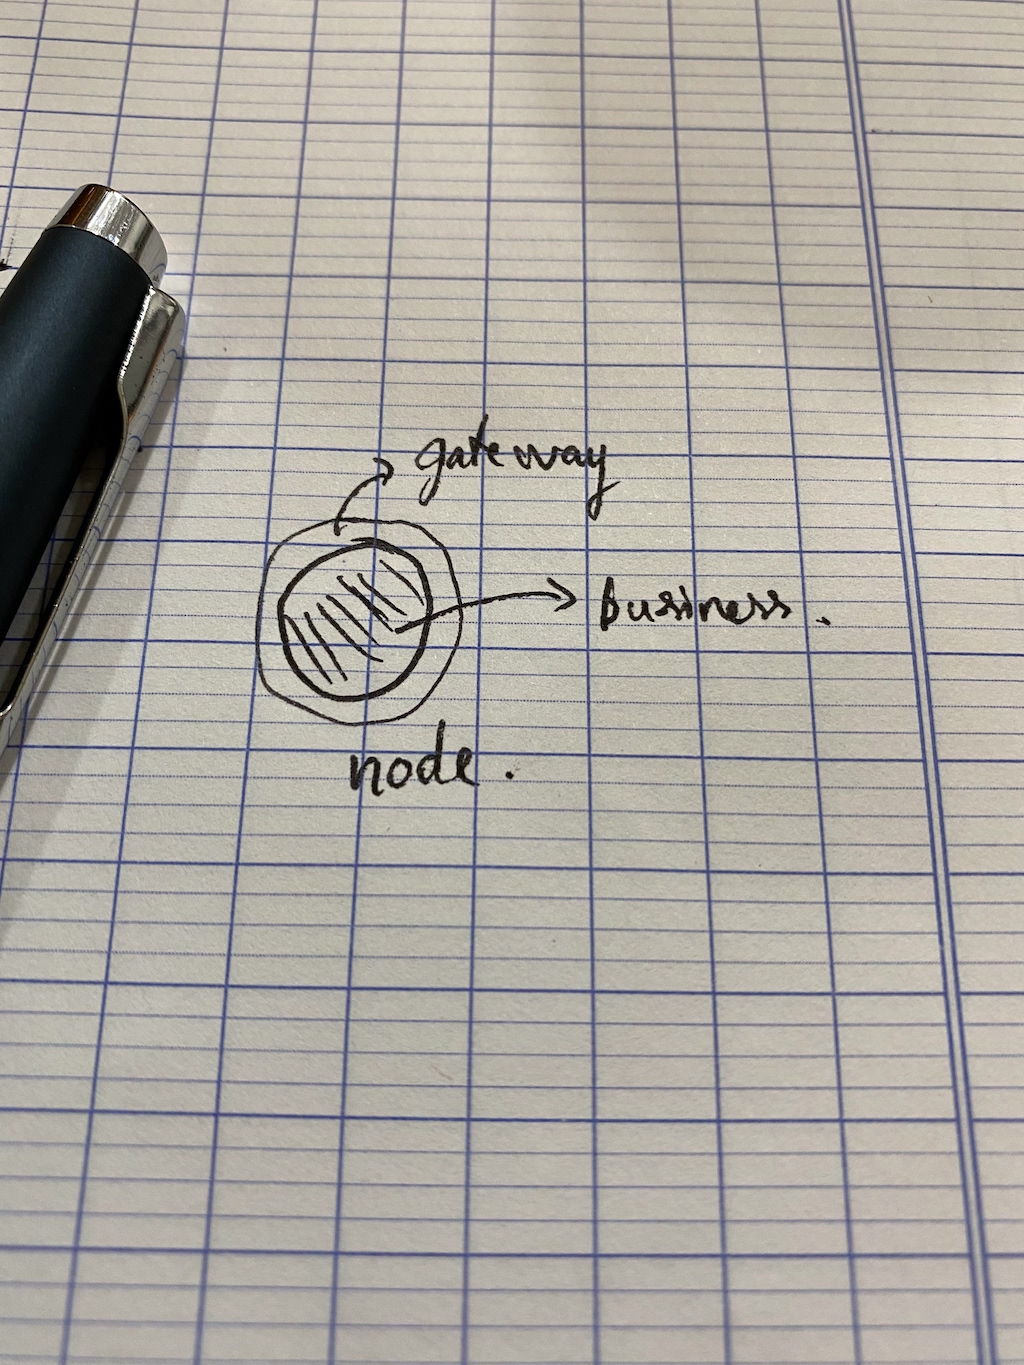 gateway
business.
node.